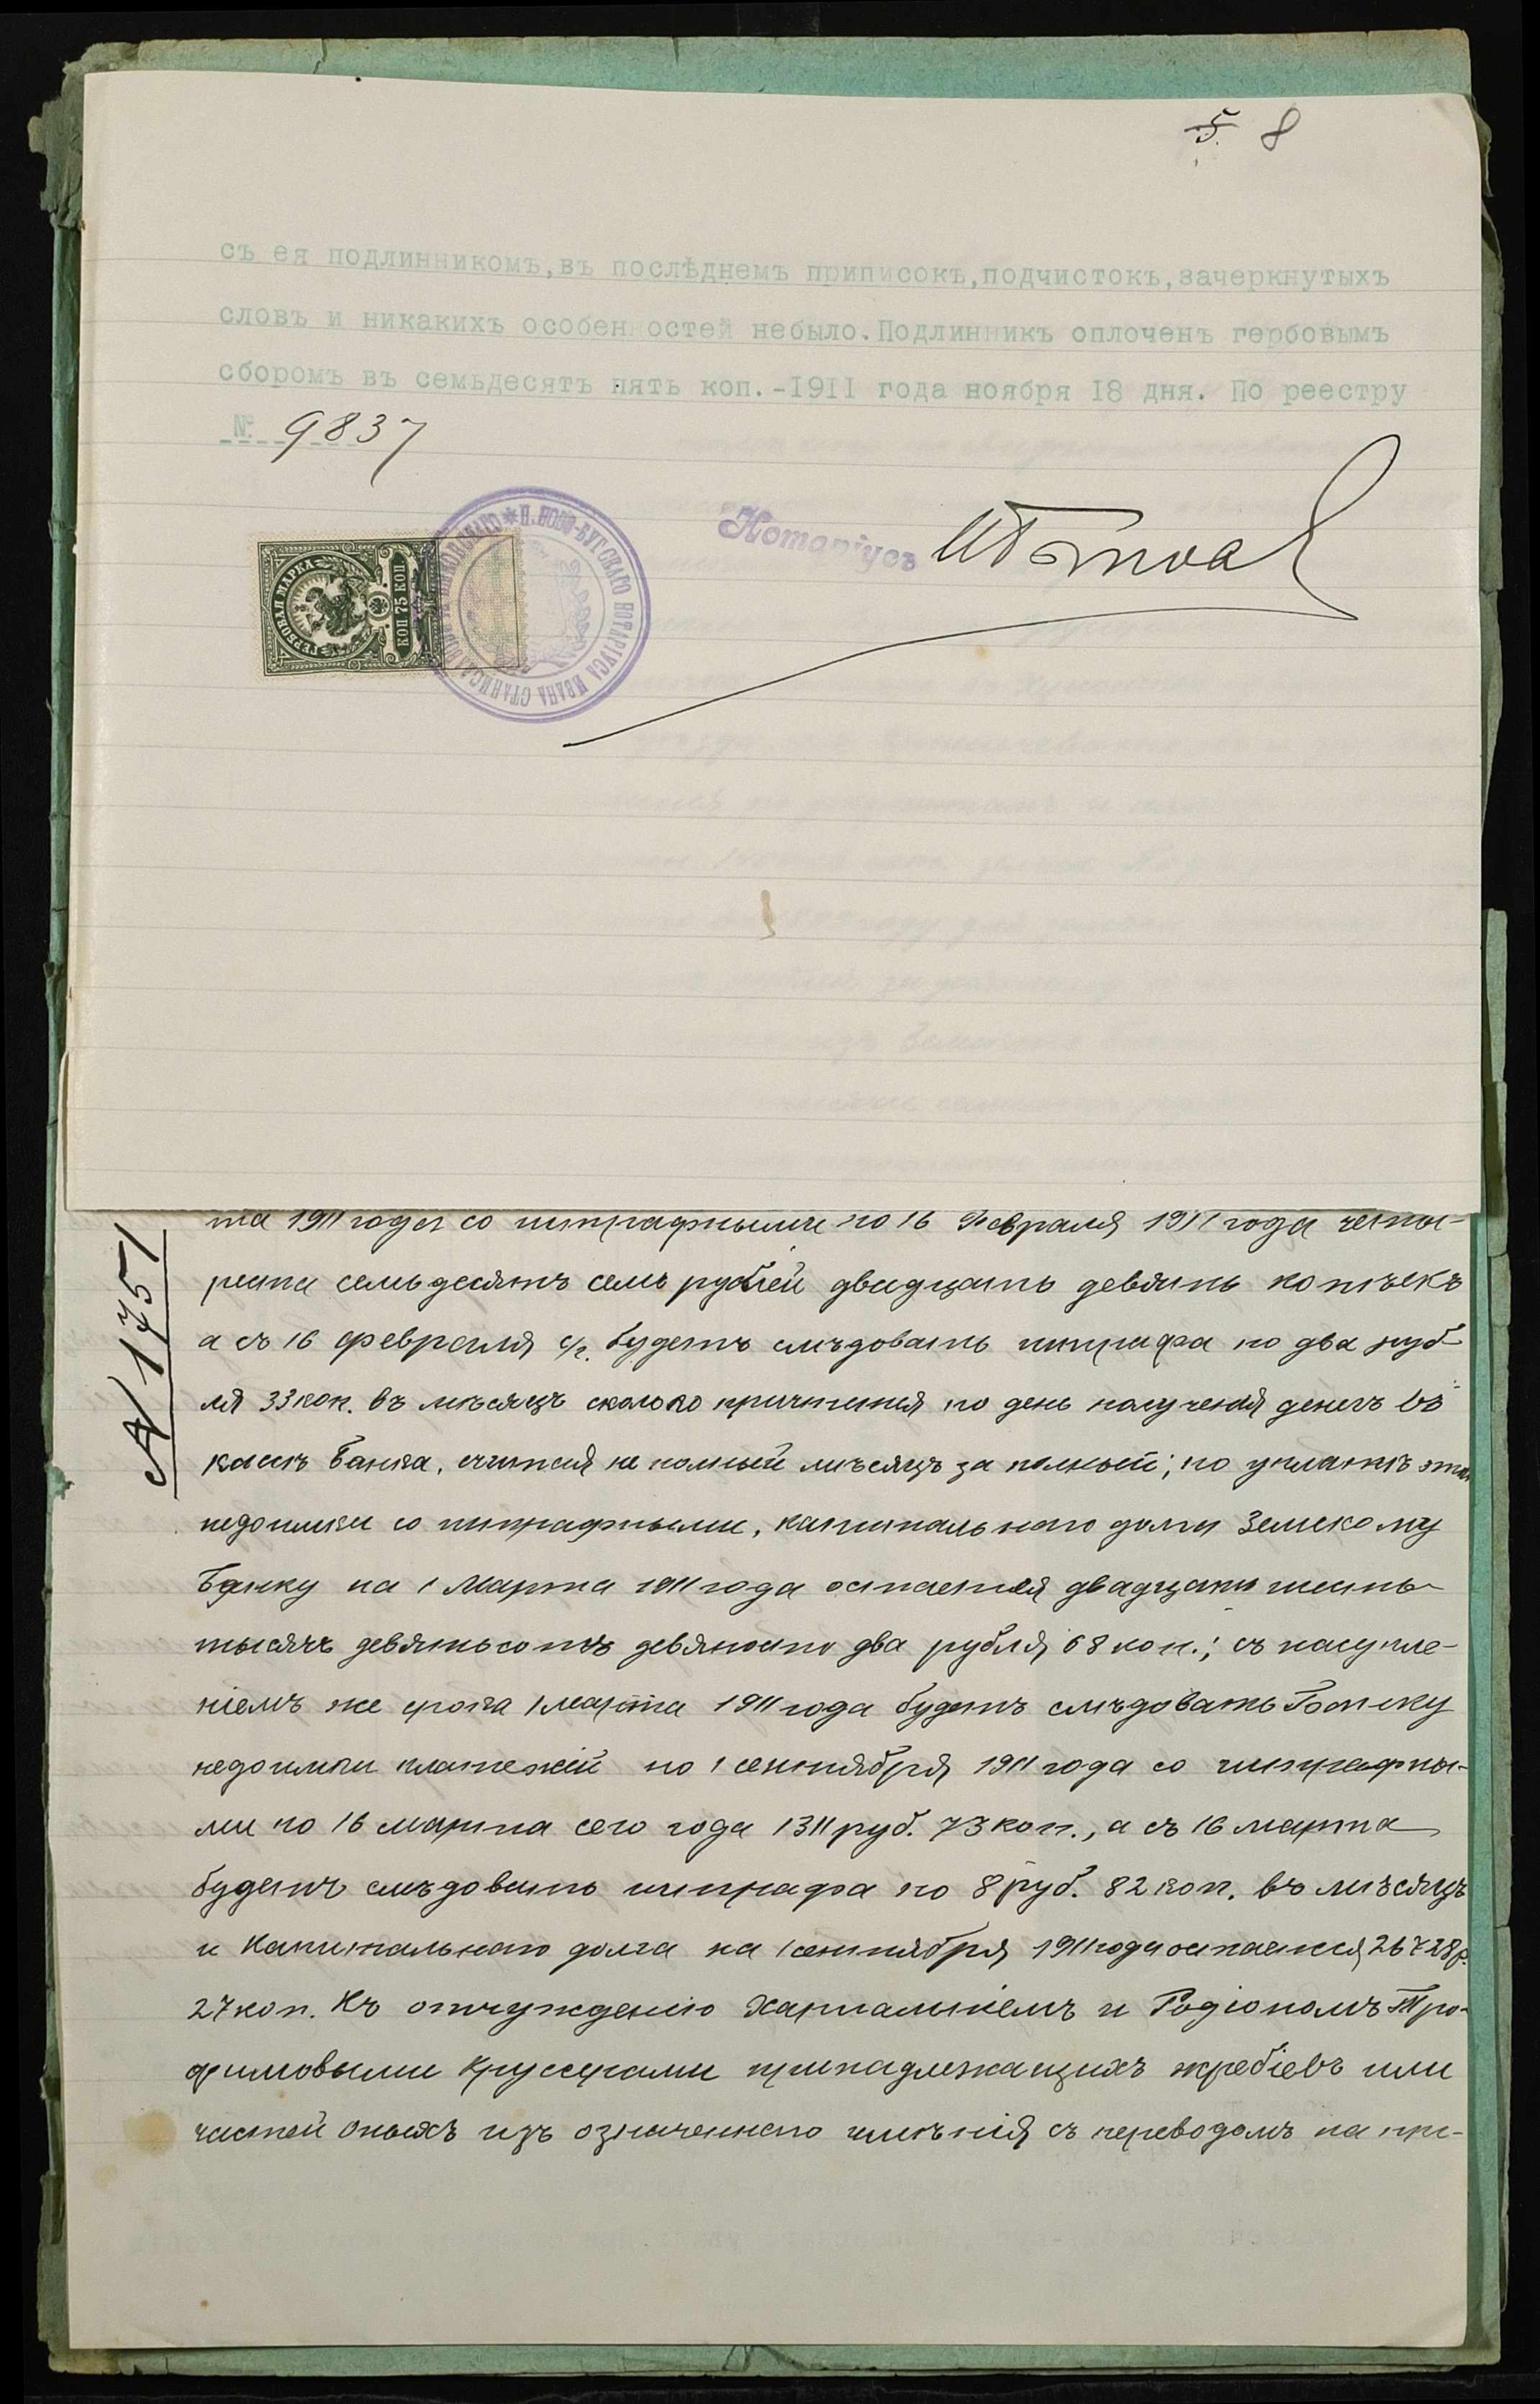 5. 8
съ ея подлинникомъ,въ послѣднемъ приписокъ,подчистокъ,зачеркнутыхъ
словъ и никакихъ особенностей небыло.Подлинникъ оплоченъ гербовымъ
сборомъ въ семьдесятъ пять коп.-1911 года ноября 18 дня. По реестру
№ 9837
Нотаріусъ
ГЕРБОВАЯ МАРКА
75 КОП
Н.НОВО-БУГСКАГО НОТАРІУСА ИВАНА
№ 1751
та 1911 года со штрафными по 16 Февраля 1911 года четы-
реста семьдесятъ семь рублей двадцать девять копѣекъ
а съ 16 февраля с/г. будетъ слѣдовать штрафа по два руб-
ля 33 коп. въ мѣсяцъ сколько причтется по день полученія денегъ въ
кассѣ Банка, считая не полный мѣсяцъ за полный; по уплатѣ этой
недоимки со штрафными, капитальнаго долга Земскому
Банку на 1 Марта 1911 года остается двадцать шесть
тысячъ девятьсотъ девяносто два рубля 68 коп.; съ наступле-
ніемъ же срока 1 марта 1911 года будетъ слѣдовать Банку
недоимки платежей по 1 сентября 1911 года со штрафны-
ми по 16 марта сего года 1311 руб. 73 коп., а съ 16 марта
будетъ слѣдовать штрафа по 8 руб. 82 коп. въ мѣсяцъ
и Капитальнаго долга на 1 сентября 1911 года остается 26728 р.
27 коп. Къ отчужденію Харлампіемъ и Родіономъ Тро-
фимовыми принадлежащихъ жребіевъ или
частей оныхъ изъ означеннаго имѣнія съ переводомъ на прі-